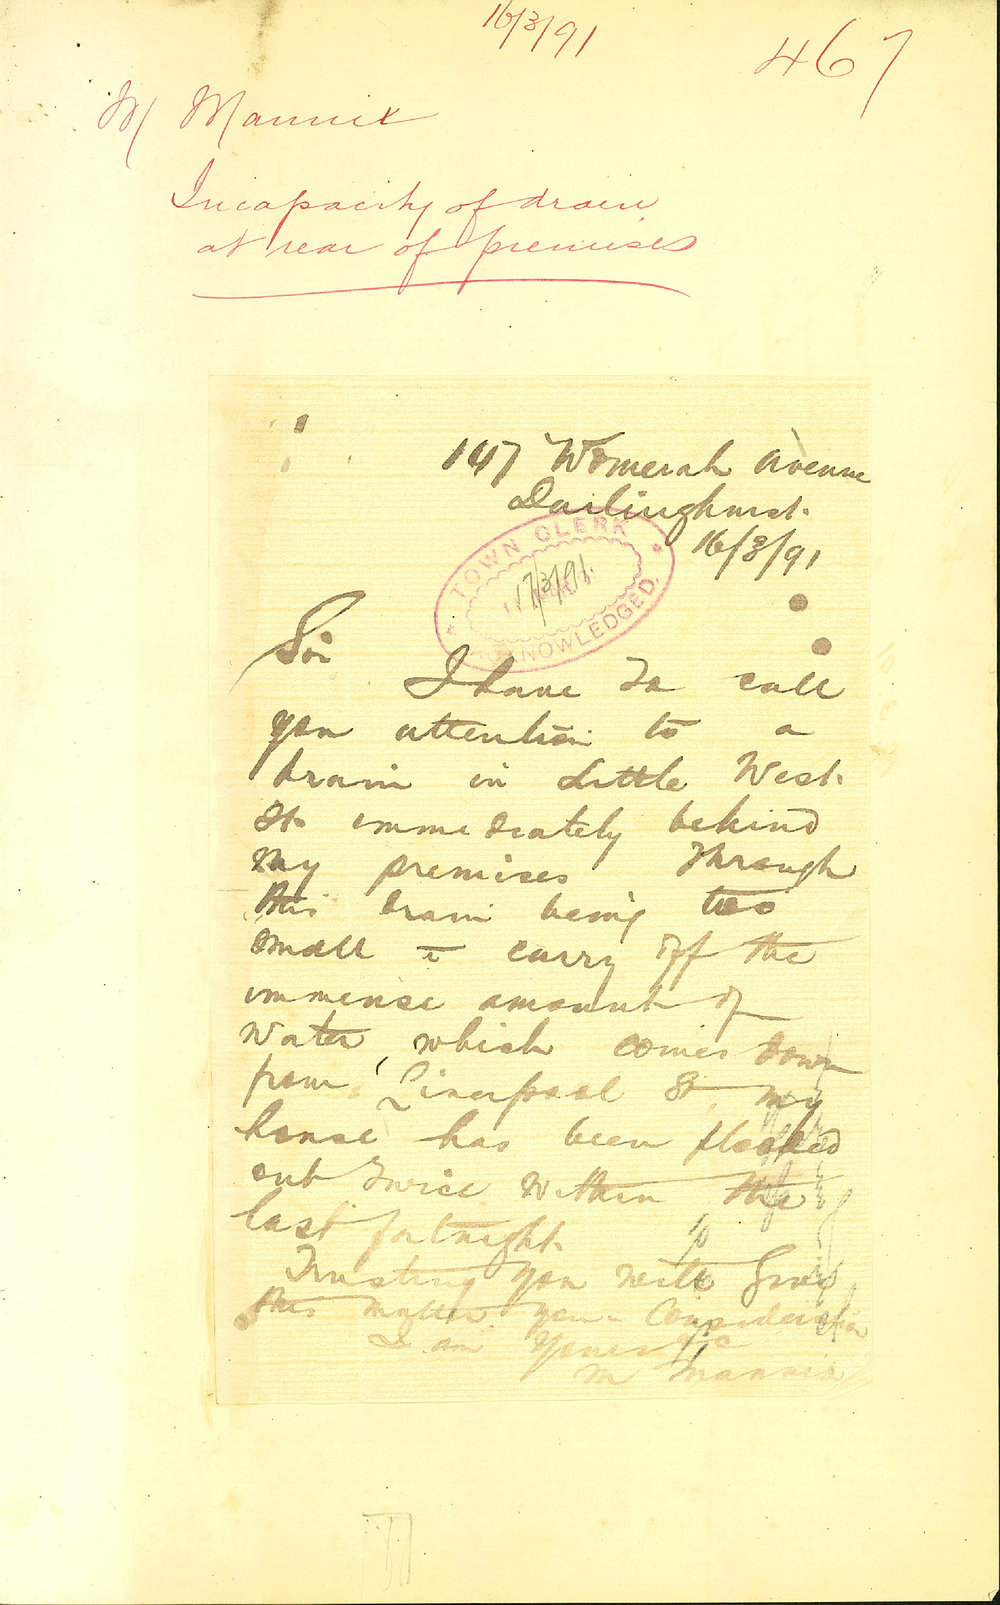 16/3/91
467
M Mannix
Incapacity of drain
at rear of premises
147 Womerah Avenue
Darlinghurst.
16/3/91
TOWN CLERK
17/3/91.
ACKNOWLEDGED.
Sir
I have to call
you attention to a
drain in Little West.
St. immediately behind
my premises Through
this drain being too
small to carry off the
immense amount of
Water which comes down
from Liverpool St, my
house has been flooded
out twice within the
last fortnight.
Trusting you will give
this matter your Consideration
I am Yours &c
M Mannix